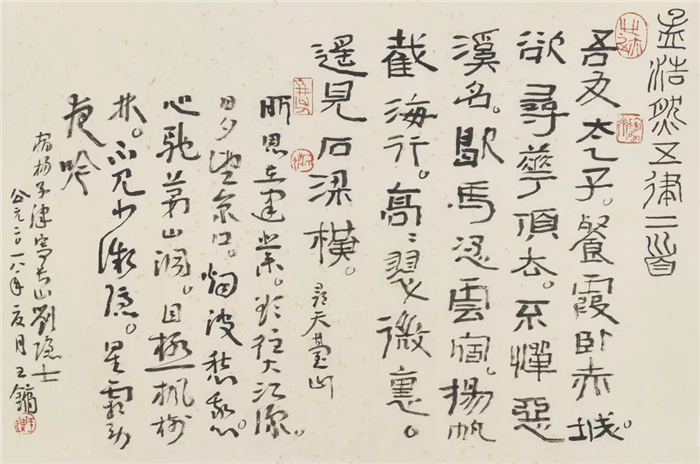 孟浩然五律二首
吾友太乙子。餐霞卧赤城。
欲尋華頂去。不憚惡
溪名。歇馬憑雲宿。揚帆
截海行。高〻翠微裏。
遥見石梁橫。
尋天臺山
所思在建業。欲往大江深。
日夕望京口。烟波愁我心。
心馳茅山洞。目極楓樹
林。不見少微隱。星霜勞
夜吟
宿揚子津寄長山劉隱士
公元二〇一八年月王鏞